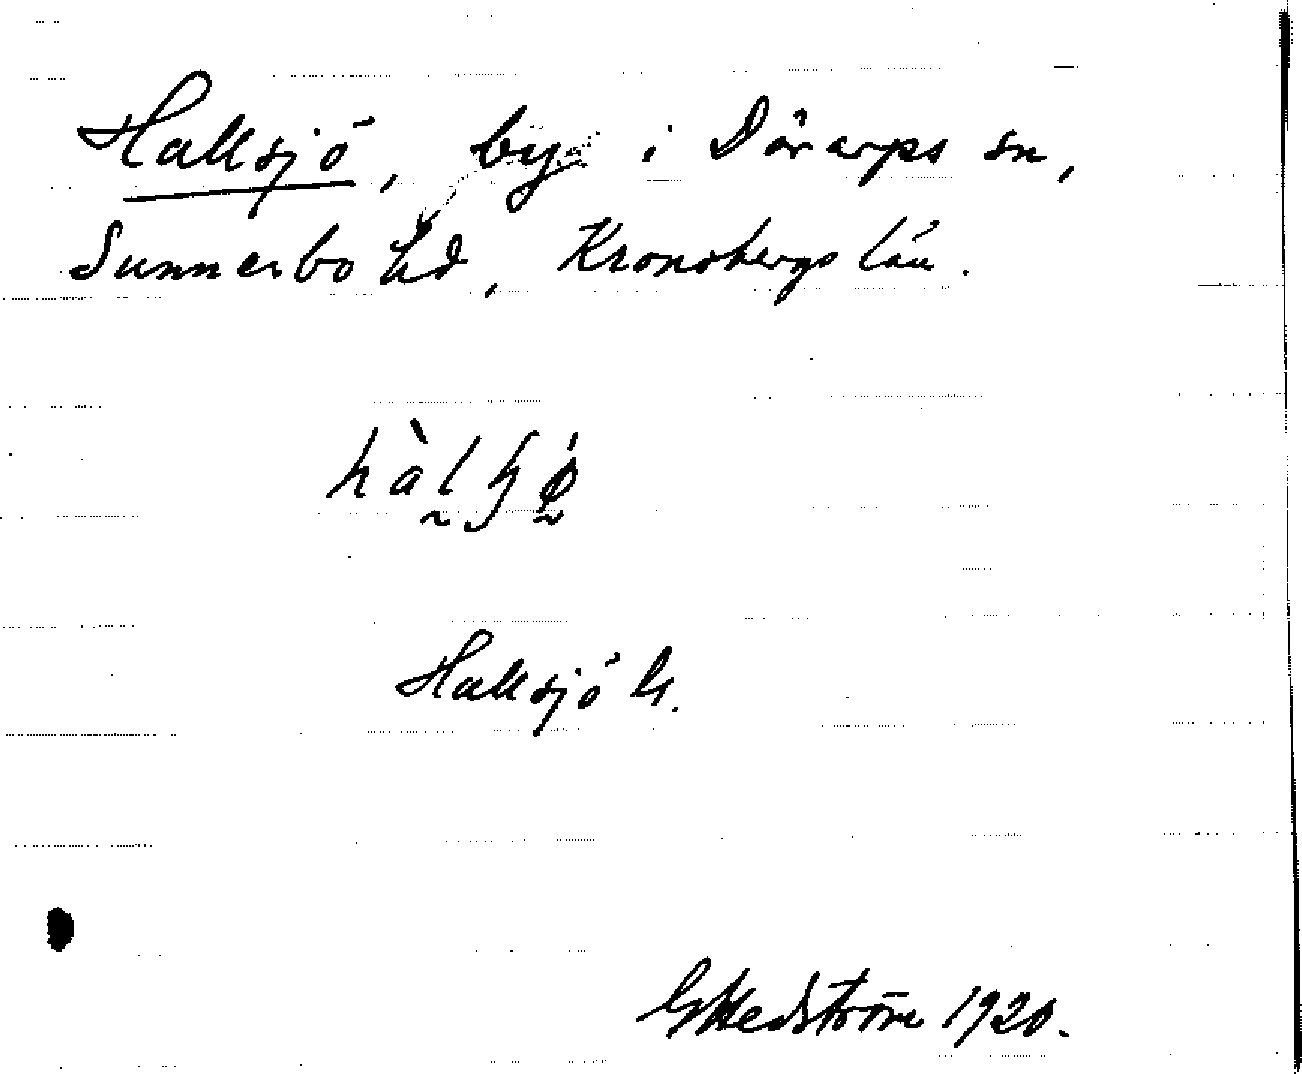 Hallsjö, by i Dörarps sn,
Sunnerbo hd, Kronobergs län.
Hallsjö G.
G Hedström 1920.